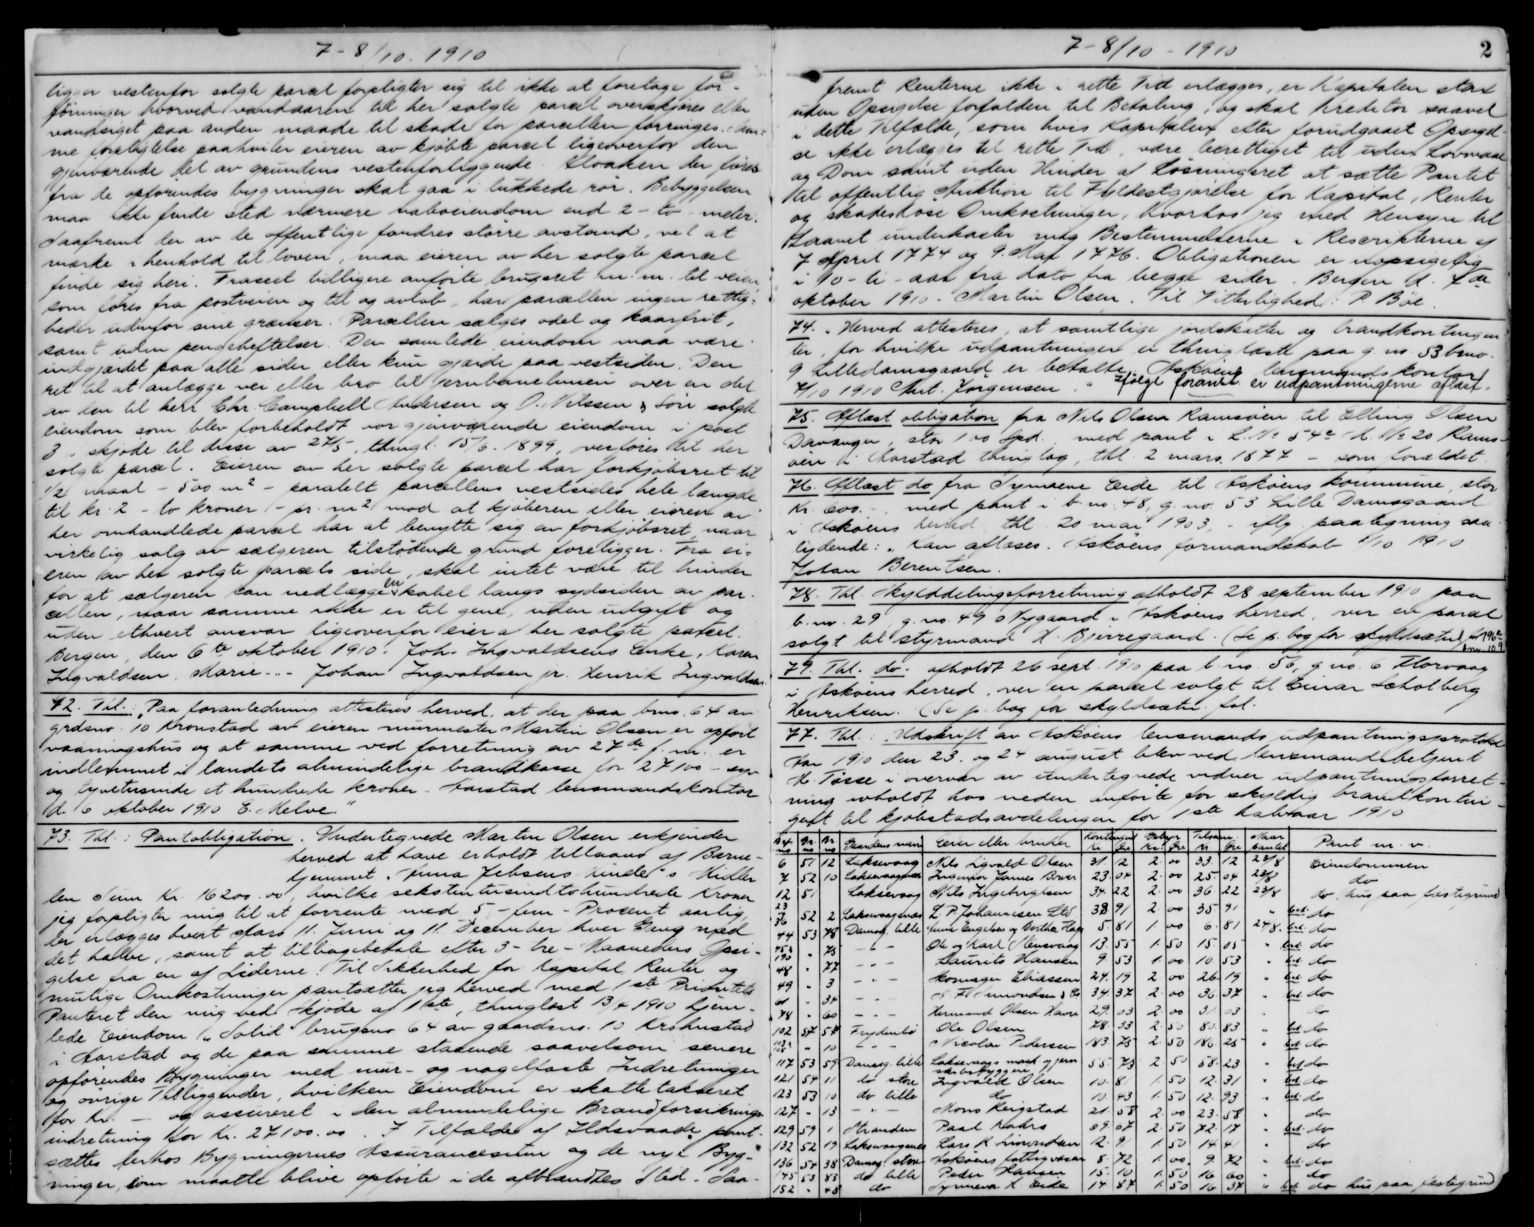 7-8/10. 1910
ligger vestenfor solgte parcel forpligter sig til ikke at foretage for-
föininger hvorved vandaaren til her solgte parcel overskjæres eller
vandsiget paa anden maade til skade for parcellen forringes. Den-
ne forpligtelse paahviler eieren av kjöbte parcel ligeoverfor den
gjenværende del av grundens vestenforliggende. Kloaken der föres
fra de opförendes bygninger skal gaa i lukkede rör. Bebyggelsen
maa ikke finde sted nærmere naboeiendom end 2 - to - meter.
Saafremt der av de offentlige fordres större avstand, vel at
merke i henhold til loven, maa eieren av her solgte parcel
finde sig heri. Fraseet tidligere anförte brugsret m. m. til veien
som föres fra postveien og til og avlöb, har parcellen ingen rettig-
heder udenfor sine grænser. Parcellen sælges odel og kaarfrit,
samt uden pengeheftelser. Den samlede eiendom maa være
indgjærdet paa alle sider eller kun gjærde paa vestsiden. Den
ret til at anlægge vei eller bro til jernbanelinien over en del
av den til herr Chr. Campbell Andersen og O. Nilssen & Sön solgte
eiendom som blev forbeholdt vor gjenværende eiendom i post
3, skjöde til disse av 27/5, thingl. 15/6. 1899, overföres til her
solgte parcel. Eieren av her solgte parcel har forkjöbsret til
1/2 maal - 500 m² - paralelt parcellens vestsides hele længde
til kr. 2 - to kroner - pr. m² mod at kjöberen eller eieren av
her omhandlede parcel har at benytte sig av forkjöbsret, naar
virkelig salg av sælgeren tilstödende grund foreligger. Fra ei-
eren av her solgte parcels side, skal intet være til hinder
for at sælgeren kan nedlægge en kabel langs sydsiden av par-
cellen, naar samme ikke er til gene, uden utgift og
uden ethvert ansvar ligeoverfor eier a her solgte parcel.
Bergen, den 6te oktober 1910. Joh. Ingvaldsens Enke, Karen
Ingvaldsen, Marie -"- Johan Ingvaldsen jr. Henrik Ingvaldsen.
72. Til.: "Paa foranledning attesteres herved, at der paa brno. 64 av
grdsno. 10 Kronstad av eieren murmester Martin Olsen er opfört
vaaningshus og at samme ved forretning av 27de f. m. er
indlemmet i landets almindelige brandkasse for 27100 - syv
og tyvetusinde et hundrede kroner. Aarstad lensmandskontor
d. 6 oktober 1910 E. Melve"
73. Thl.: Pantobligation. Undertegnede Martin Olsen erkjender
herved at have erholdt tillaans af Barne-
hjemmet "Anna Jebsens Minde"s Midler
den Sum Kr. 16200.00, hvilke sekstentusindtohundrede Kroner
jeg forpligter mig til at forrente med 5 - fem - Procent aarlig,
der erlægges hvert Aars 11. Juni og 11. December hver Gang med
det halve, samt at tilbagebetale efter 3 - tre - Maaneders Opsi-
gelse fra en af Siderne. Til Sikkerhed for Kapital Renter og
mulige Omkostninger pantsætter jeg herved med 1ste Prioritets
Panteret den mig ved Skjöde af 1ste, thinglæst 13/4 1910 hjem-
lede Eiendom "Solid" brugsno 64 av gaardsno. 10 Krohnstad
i Aarstad og de paa samme staaende saavelsom senere
opförendes Bygninger med mur- og nagelfaste Indretninger
og övrige Tilliggender, hvilken Eiendom er skattetakseret
for Kr. - og assureret i den almindelige Brandforsikrings-
indretning for Kr. 27100.00. I Tilfælde af Ildsvaade pant-
sættes derhos Bygningernes Assurancesum og de nye Byg-
ninger, som maatte blive opförte i de afbrændtes Sted. Saa-
7-8/10 - 1910
2
fremt Renterne ikke i rette Tid erlægges, er Kapitalen strax
uden Opsigelse forfalden til Betaling, og skal Kreditor saavel
i dette Tilfælde, som hvis Kapitalen efter forudgaaet Opsigel-
se ikke erlægges til rette Tid, være berettiget til uden Lovmaal
og Dom samt uden Hinder af Lösningsret at sætte Pantet
til offentlig Auktion til Fyldestgjörelse for Kapital, Renter
og skadeslöse Omkostninger, hvorhos jeg med Hensyn til
Laanet underkaster mig Bestemmelserne i Rescripterne af
7 April 1774 og 9. Mai 1776. Obligationen er uopsigelig
i 10 - ti - aar fra dato fra begge sider. Bergen d. 7de
oktober 1910. Martin Olsen. Til Vitterlighed: P. Böe
74. "Herved attesteres, at samtlige jordskatter og brandkontingen-
ter, for hvilke udpantninger er thinglæste paa g. no. 53 brno.
9 Lilledamsgaard er betalte. Askøens lensmandskontor
7/10 1910 Ant. Jørgensen." Ifølge foranst. er udpantningerne aflæst.
75. Aflæst obligation fra Nils Olsen Ramsøen til Elling Olsen
Davanger, stor 100 Spd. med pant i L. No 54c M. No 20 Rams-
øen i Aarstad thinglag, thl. 2 mars 1877 - som forældet.
76. Aflæst do fra Synneve Eide til Askøens kommune, stor
Kr. 600.-, med pant i b. no. 48, g. no. 53 Lille Damsgaard
i Askøens herred, thl. 20 mai 1903, - iflg. paategning saa-
lydende: "Kan aflæses. Askøens formandskab 1/10 1910
Johan Berentsen.
78. Thl. Skylddelingsforretning afholdt 28 september 1910 paa
b. no. 29, g. no. 49 Nygaard i Askøens herred, over en parcel
solgt til styrmand H. Bjerregaard. (Se p. bog for skyldsætn.
79. Thl. do. afholdt 26 sept. 1910 paa b. no. 56, g. no. 6 Florvaag
i Askøens herred, over en parcel solgt til Einar Scholberg
Henriksen. (Se p. bog for skyldsætn. fol.
77. Thl.: Udskrift av Askøens lensmands udpantningsprotokol
Aar 1910 den 23. og 24 august blev ved lensmandsbetjent
H. Tøsse i overvær av undertegnede vidner udpantningsforret-
ning avholdt hos neden anførte for skyldig brandkontin-
gent til kjöbstadsavdelingen for 1ste halvaar 1910
Gaardens navn Eier eller bruker Kontingent Kr. Øre Gebyr Kr. Øre Tilsam. Kr. Øre Naar pantet Pant m. v.
6 51 12 Laksevaag Nils Ingvald Olsen 31 2 2 00 33 12 23/8 Eiendommen
7 52 10 Laksevaagnes Ingeniør James Brun 23 04 2 00 25 04 23/8 do
12 51 Laksevaag Nils Ingebrigtsen 34 22 2 00 36 22 23/8 do. hus paa festegrund
52 2 Laksevaagnes L. P. Johannesen 2 00 35 91 " do
44 53 78 Damsg. lille 5 81 1 00 6 81 24/8 do
" 75 -"- Ole og Karl Stensvaag 13 55 1 50 15 05 " do
48 " 77 -"- Laurits Hansen 9 53 1 00 10 53 " do
49 " 3 -"- Eliassen 24 19 2 00 26 19 " do
61 " 34 -"- 34 37 2 00 36 37 " do
78 " 60 -"- Hermand Olsen 29 03 2 00 31 03 " do
102 57 58 Frydenbø Ole Olsen 78 33 2 50 80 83 " do
" 10 " " Nicolai Pedersen 183 75 2 50 186 25 " do
117 53 59 Damsg. lille Laksevaags mask. og jern skibsbyggeri 55 73 2 50 58 23 " do
121 54 11 do store Ingvald Olsen 10 81 1 50 12 31 " do
123 53 10 do lille do 10 43 1 50 12 93 " do
127 " 13 -"- Mons Reigstad 21 58 2 00 23 58 " do
129 59 1 Stranden Paal Kahrs 69 67 2 50 72 17 " do
132 52 19 Laksevaagnes Lars K. 12 91 1 50 14 41 " do
136 54 38 Damsg. store Askøens fattigvæsen 8 72 1 00 9 72 " do
145 53 83 do lille Peder Hansen 15 10 1 50 16 60 " do
152 " 48 do Synneva K Eide 14 87 1 50 16 37 " do hus paa festegrund